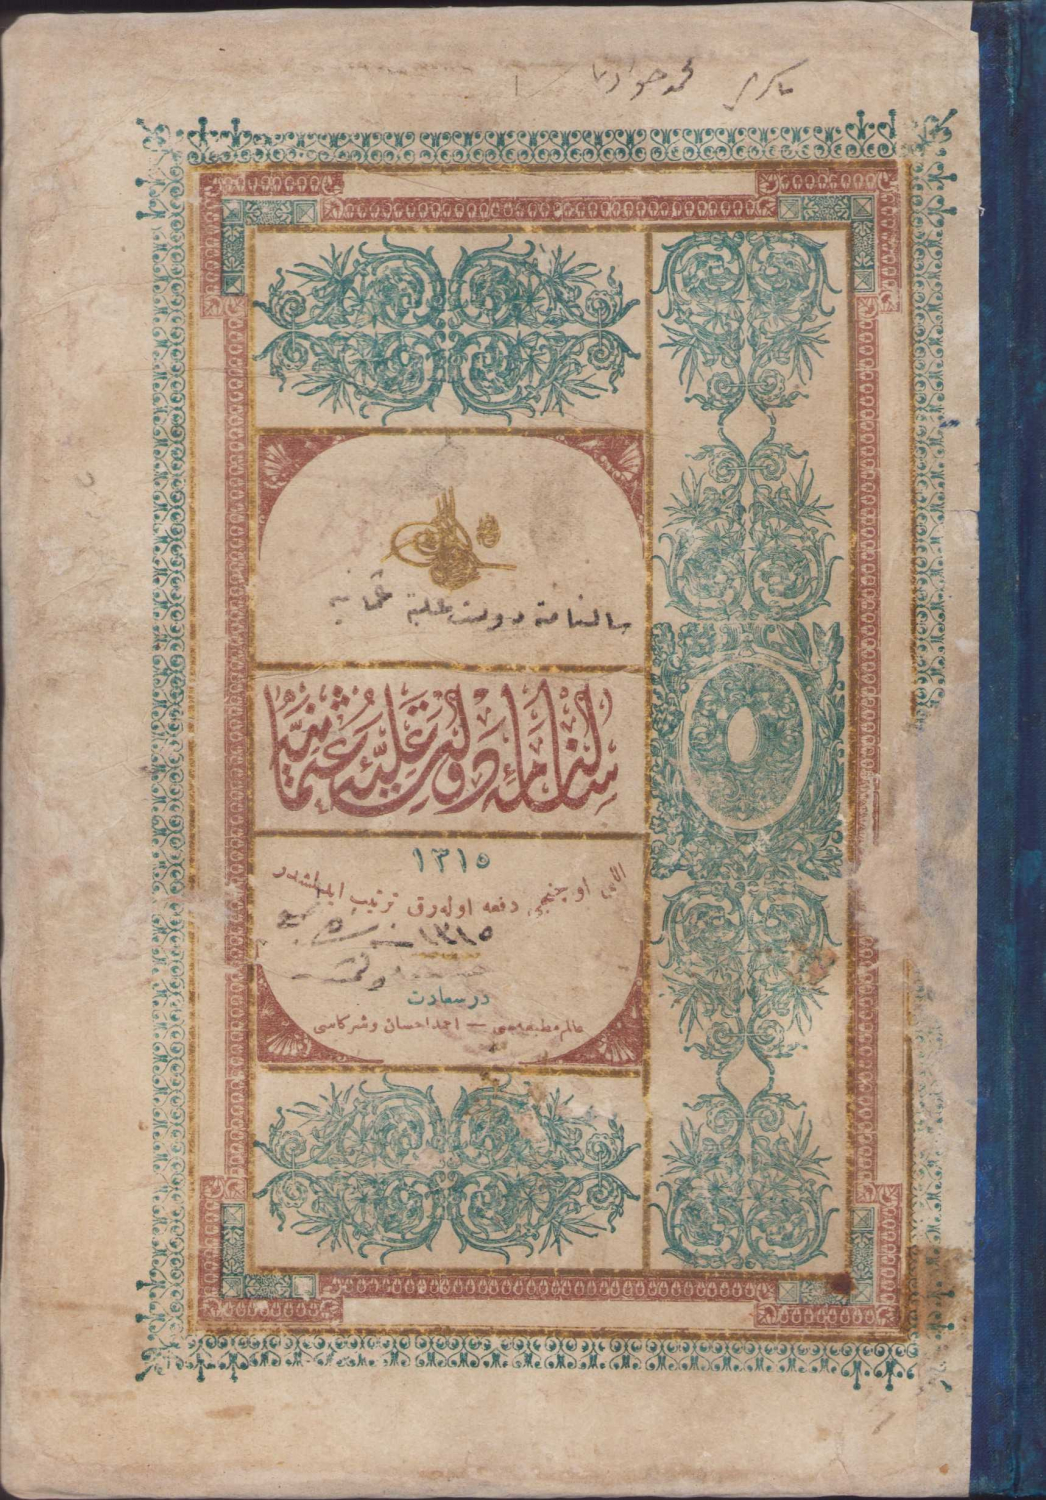 سالنامهٔ دولت علیهٔ عثمانیه
سالنامهٔ دولت علیهٔ عثمانیه
۱۳۱۵
اللی اوچنجی دفعه اوله‌رق ترتیب ایدلمشدر
۱۳۱۵
درسعادت
عالم مطبعه‌سی — احمد احسان وشرکاسی